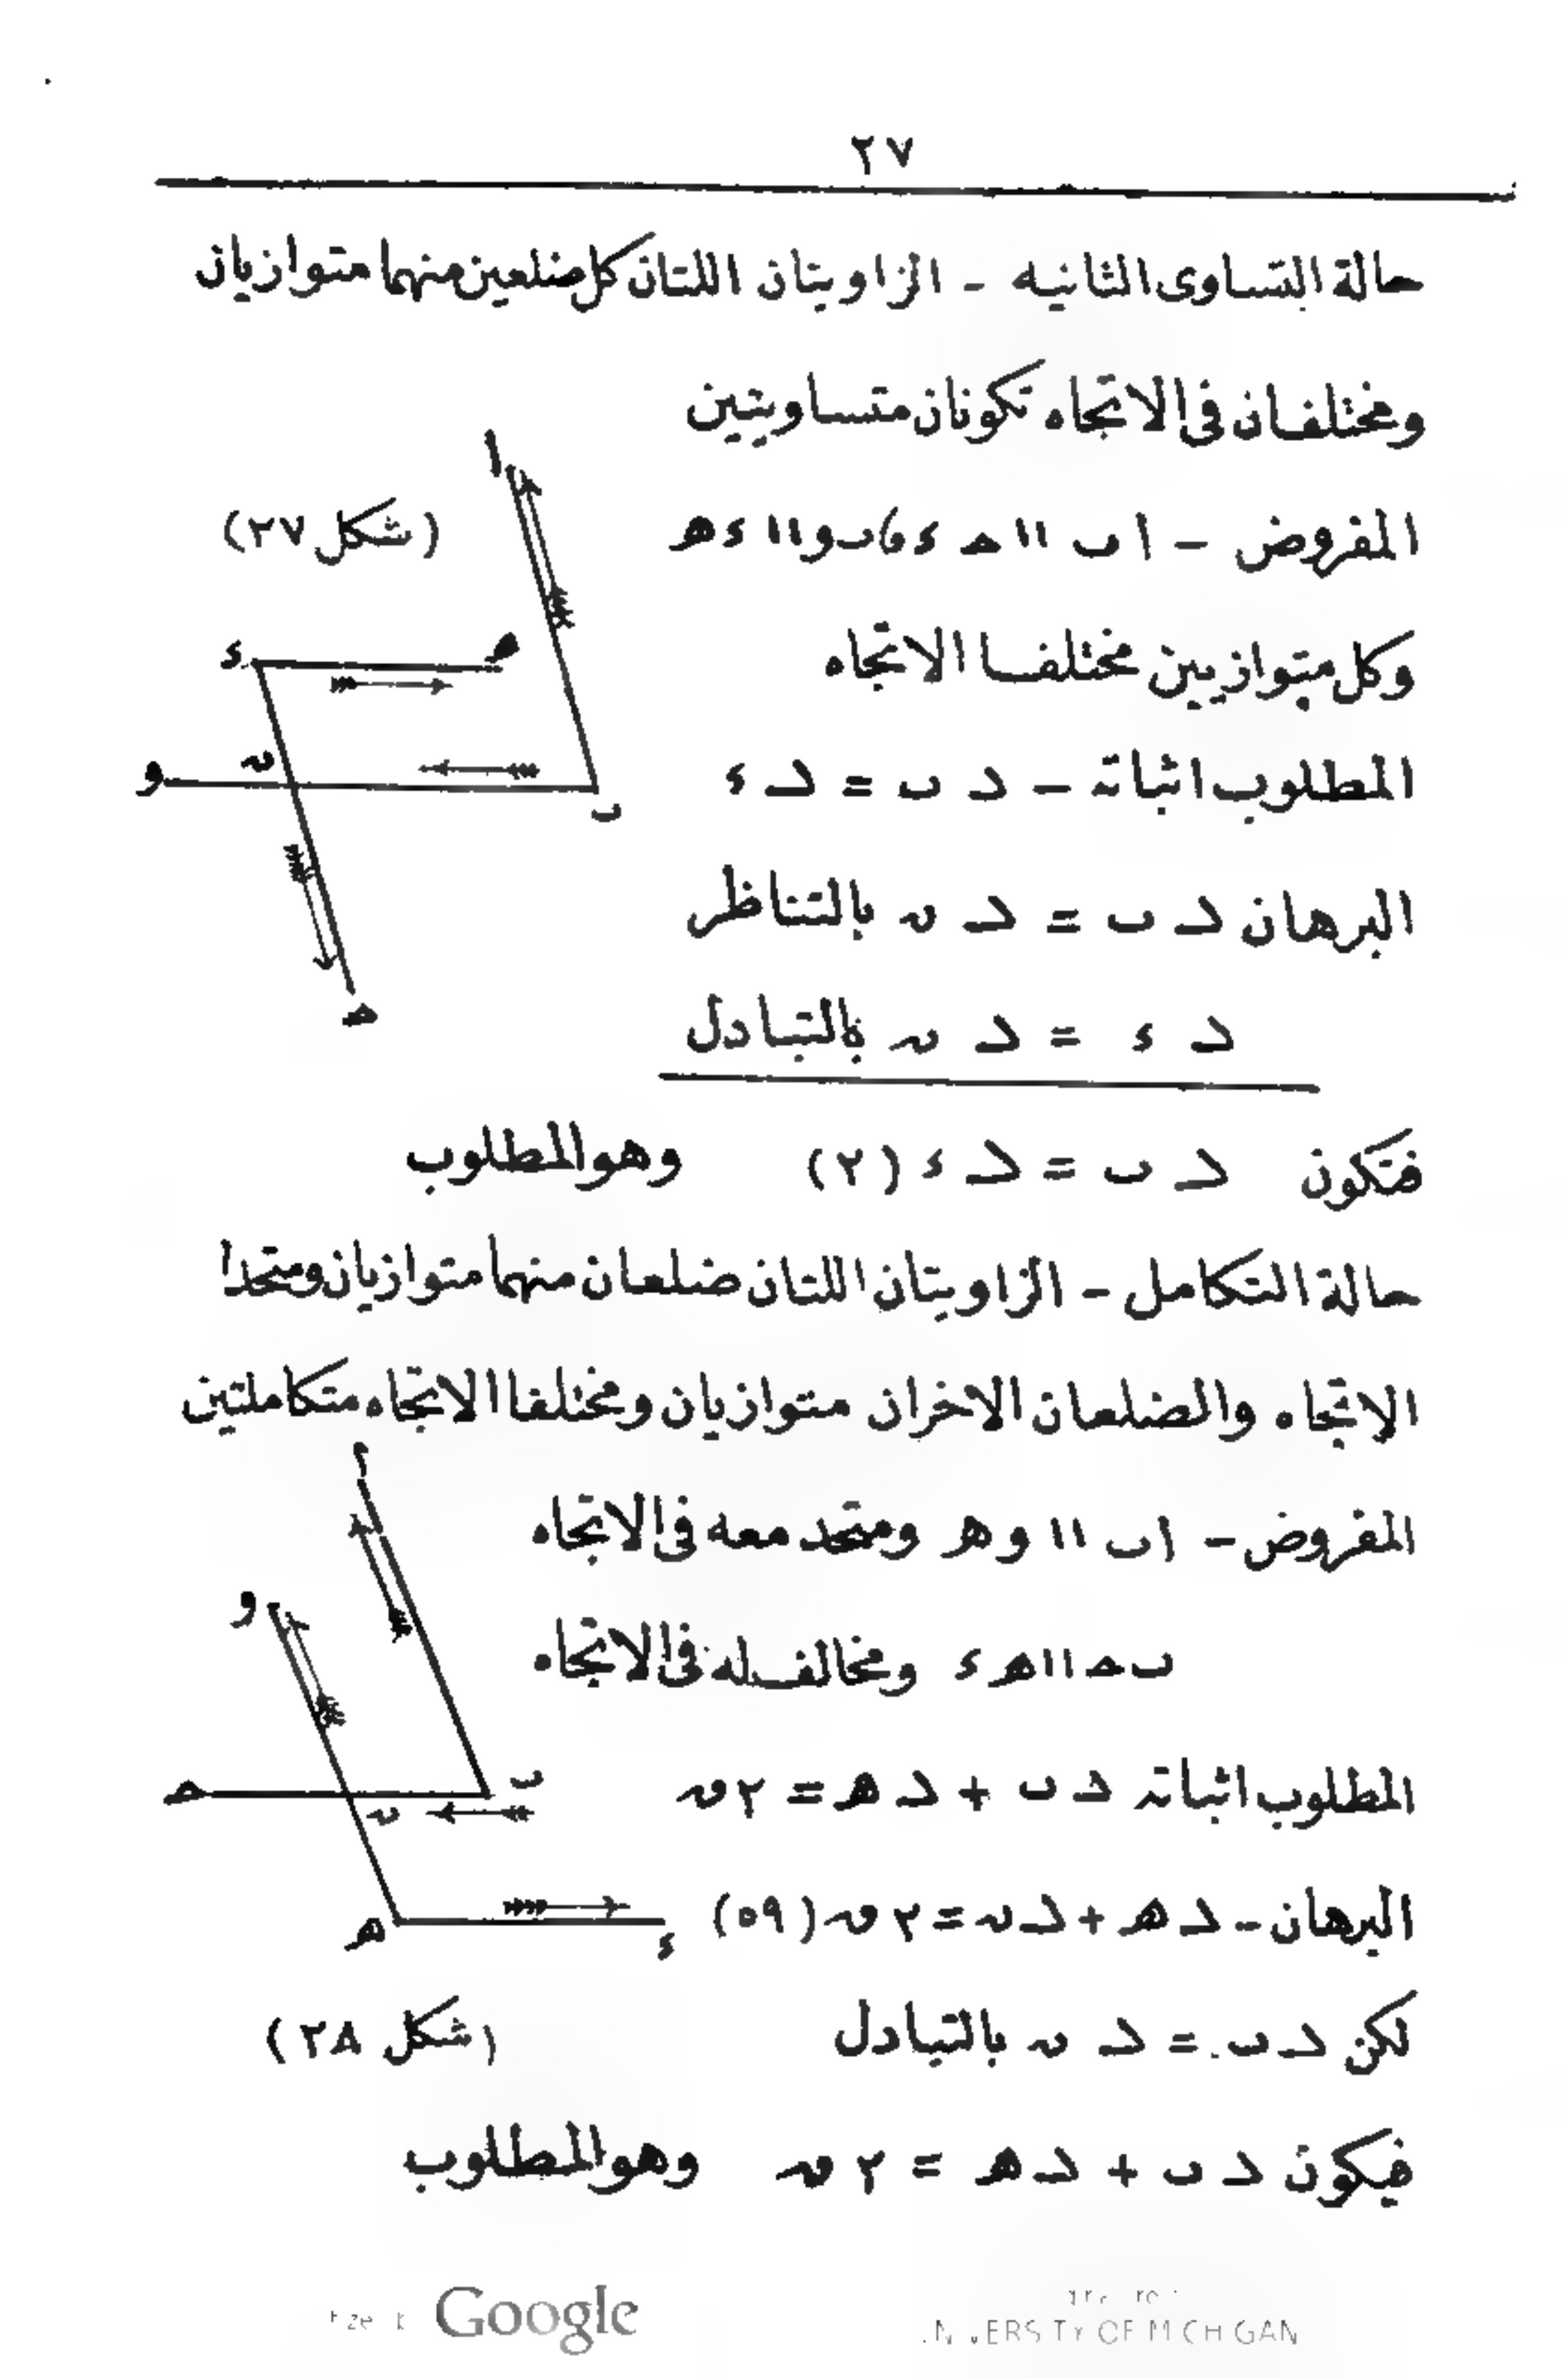 ٢٧
حالة التساوى الثانيه - الزاويتان اللتان كل ضلعين منهما متوازيان
ومختلفان فى الاتجاه تكونان متساويتين
المفروض - ا ب // حـ ء و ب و // ء هـ
(شكل ٢٧)
وكل متوازيين مختلفا الاتجاه
المطلوب اثباته - د ب = د ء
البرهان د ب = د ن بالتناظر
د ء = د ن بالتبادل
فتكون د ب = د ء (٢) وهو المطلوب
حالة التكامل - الزاويتان اللتان ضلعان منهما متوازيان ومتحدا
الاتجاه والضلعان الاخران متوازيان ومختلفا الاتجاه متكاملتين
المفروض - ا ب // و هـ ومتحد معه فى الاتجاه
ب حـ // هـ ء ومخالف له فى الاتجاه
المطلوب اثباته د ب + د هـ = ٢ ق
البرهان - د هـ + د ن = ٢ ق (٥٩)
لكن د ب = د ن بالتبادل
(شكل ٢٨)
فيكون د ب + د هـ = ٢ ق وهو المطلوب
ا
ء
حـ
ن
و
ب
هـ
ا
و
ب
حـ
ن
هـ
ء
Google
UNIVERSITY OF MICHIGAN